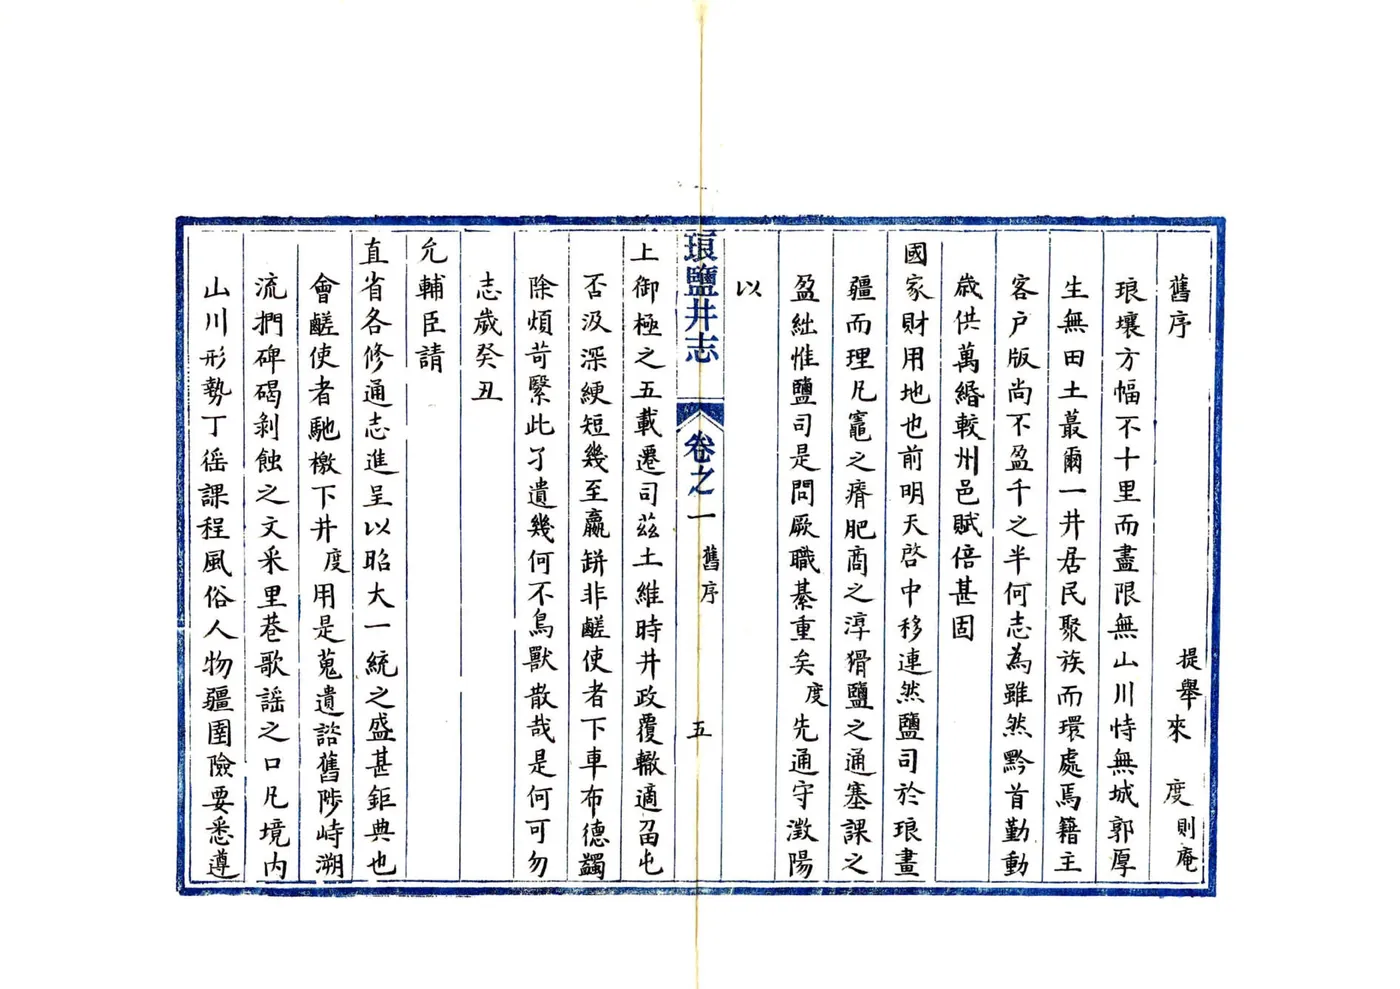 舊序
提舉來　度則庵
琅壤方幅不十里而盡限無山川恃無城郭厚
生無田土蕞爾一井居民聚族而環處焉籍主
客戶版尚不盈千之半何志為雖然黔首勤動
歲供萬緡較州邑賦倍甚固
國家財用地也前明天啓中移連然鹽司於琅畫
疆而理凡竈之瘠肥商之淳猾鹽之通塞課之
盈絀惟鹽司是問厥職綦重矣度先通守澂陽
以
琅鹽井志　卷之一　舊序　五
上御極之五載遷司茲土維時井政覆轍適畱屯
否汲深綆短幾至羸缾非鹺使者下車布德蠲
除煩苛繄此孑遺幾何不鳥獸散哉是何可勿
志歲癸丑
允輔臣請
直省各修通志進呈以昭大一統之盛甚鉅典也
會鹺使者馳檄下井度用是蒐遺諮舊陟峙溯
流捫碑碣剝蝕之文采里巷歌謠之口凡境內
山川形勢丁徭課程風俗人物疆圉險要悉遵